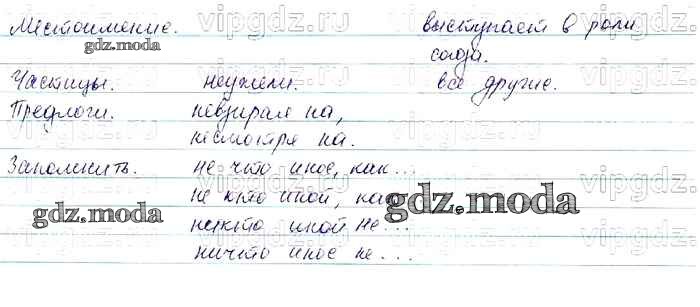 Местоимение. выступает в роли
союза.
Частицы. неужели. все другие.
Предлоги. невзирая на,
несмотря на.
Запомнить. не что иное, как...
не кто иной, как
никто иной не...
ничто иное не...
gdz.moda
gdz.moda
gdz.moda
vipgdz.ru